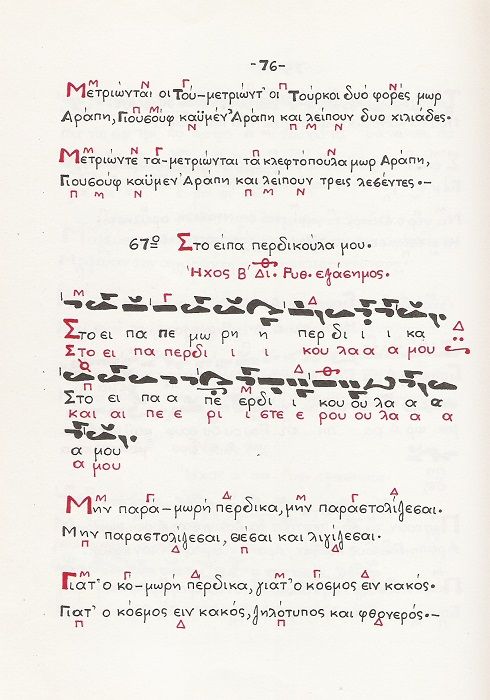 -76-
Μετριώνται οι Τού-μετριώντ' οι Τούρκοι δυό φορές μωρ
Αράπη, Γιουσούφ καϋμέν' Αράπη και λείπουν δυο χιλιάδες.
Μετριώντε τα-μετριώνται τα κλεφτόπουλα μωρ Αράπη,
Γιουσούφ καϋμεν' Αράπη και λείπουν τρεις λεβέντες.-
67ο Στο είπα περδικούλα μου.
Ήχος Β' Δι. Ρυθ. εξάσημος.
Στο ει πα πε μω ρη η περ δι ι ι κα
Στο ει πα περδι ι ι κου λα α α μου
Στο ει πα α πε ερδι ι κου ου λα α α
και αι πε ε ρι ι στε ε ρου ου λα α α
α μου
α μου
Μην παρα-μωρή πέρδικα, μην παραστολίζεσαι.
Μην παραστολίζεσαι, θιέσαι και λιγίζεσαι.
Γιατ' ο κο-μωρή πέρδικα, γιατ' ο κόσμος ειν κακός.
Γιατ' ο κόσμος ειν κακός, ζηλότυπος και φθονερός.-